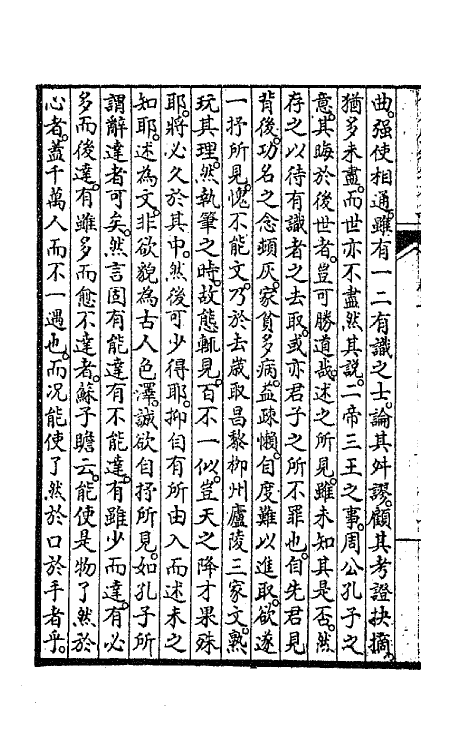 曲。强使相通。雖有一二有識之士。論其舛謬。顧其考證抉摘。
猶多未盡。而世亦不盡然其說。二帝三王之事。周公孔子之
意。其晦於後世者。豈可勝道哉。述之所見。雖未知其是否。然
存之以待有識者之去取。或亦君子之所不罪也。自先君見
背後。功名之念頓灰。家貧多病。益疎懶。自度難以進取。欲遂
一抒所見。愧不能文。乃於去歲取昌黎柳州廬陵三家文。熟
玩其理。然執筆之時。故態輒見。百不一似。豈天之降才果殊
耶。將必久於其中。然後可少得耶。抑自有所由入而述未之
如耶。述為文。非欲貌為古人色澤。誠欲自抒所見。如孔子所
謂辭達者可矣。然言固有能達有不能達。有雖少而達。有必
多而後達。有雖多而愈不達者。蘇子瞻云。能使是物了然於
心者。蓋千萬人而不一遇也。而況能使了然於口於手者乎。